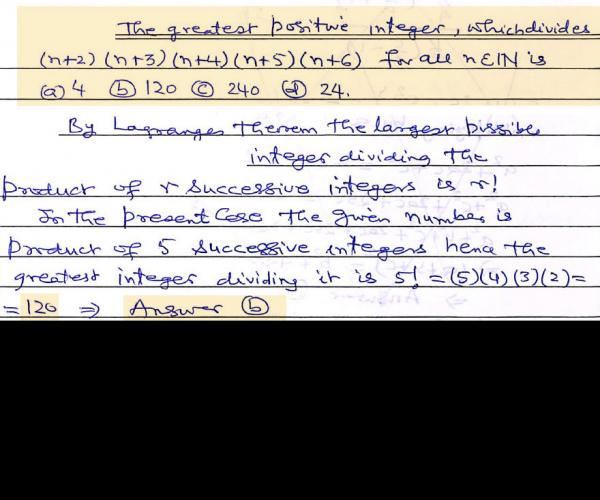 The greatest positive integer, which divides
(n+2) (n+3) (n+4) (n+5) (n+6) for all n ∈ IN is
(a) 4 (b) 120 (c) 240 (d) 24.
By Lagranges therem the largest pissible
integer dividing the
product of r successive integers is r!
In the present case the given number is
product of 5 successive integers hence the
greatest integer dividing it is 5! = (5)(4)(3)(2)=
= 120 ⇒ Answer (b)